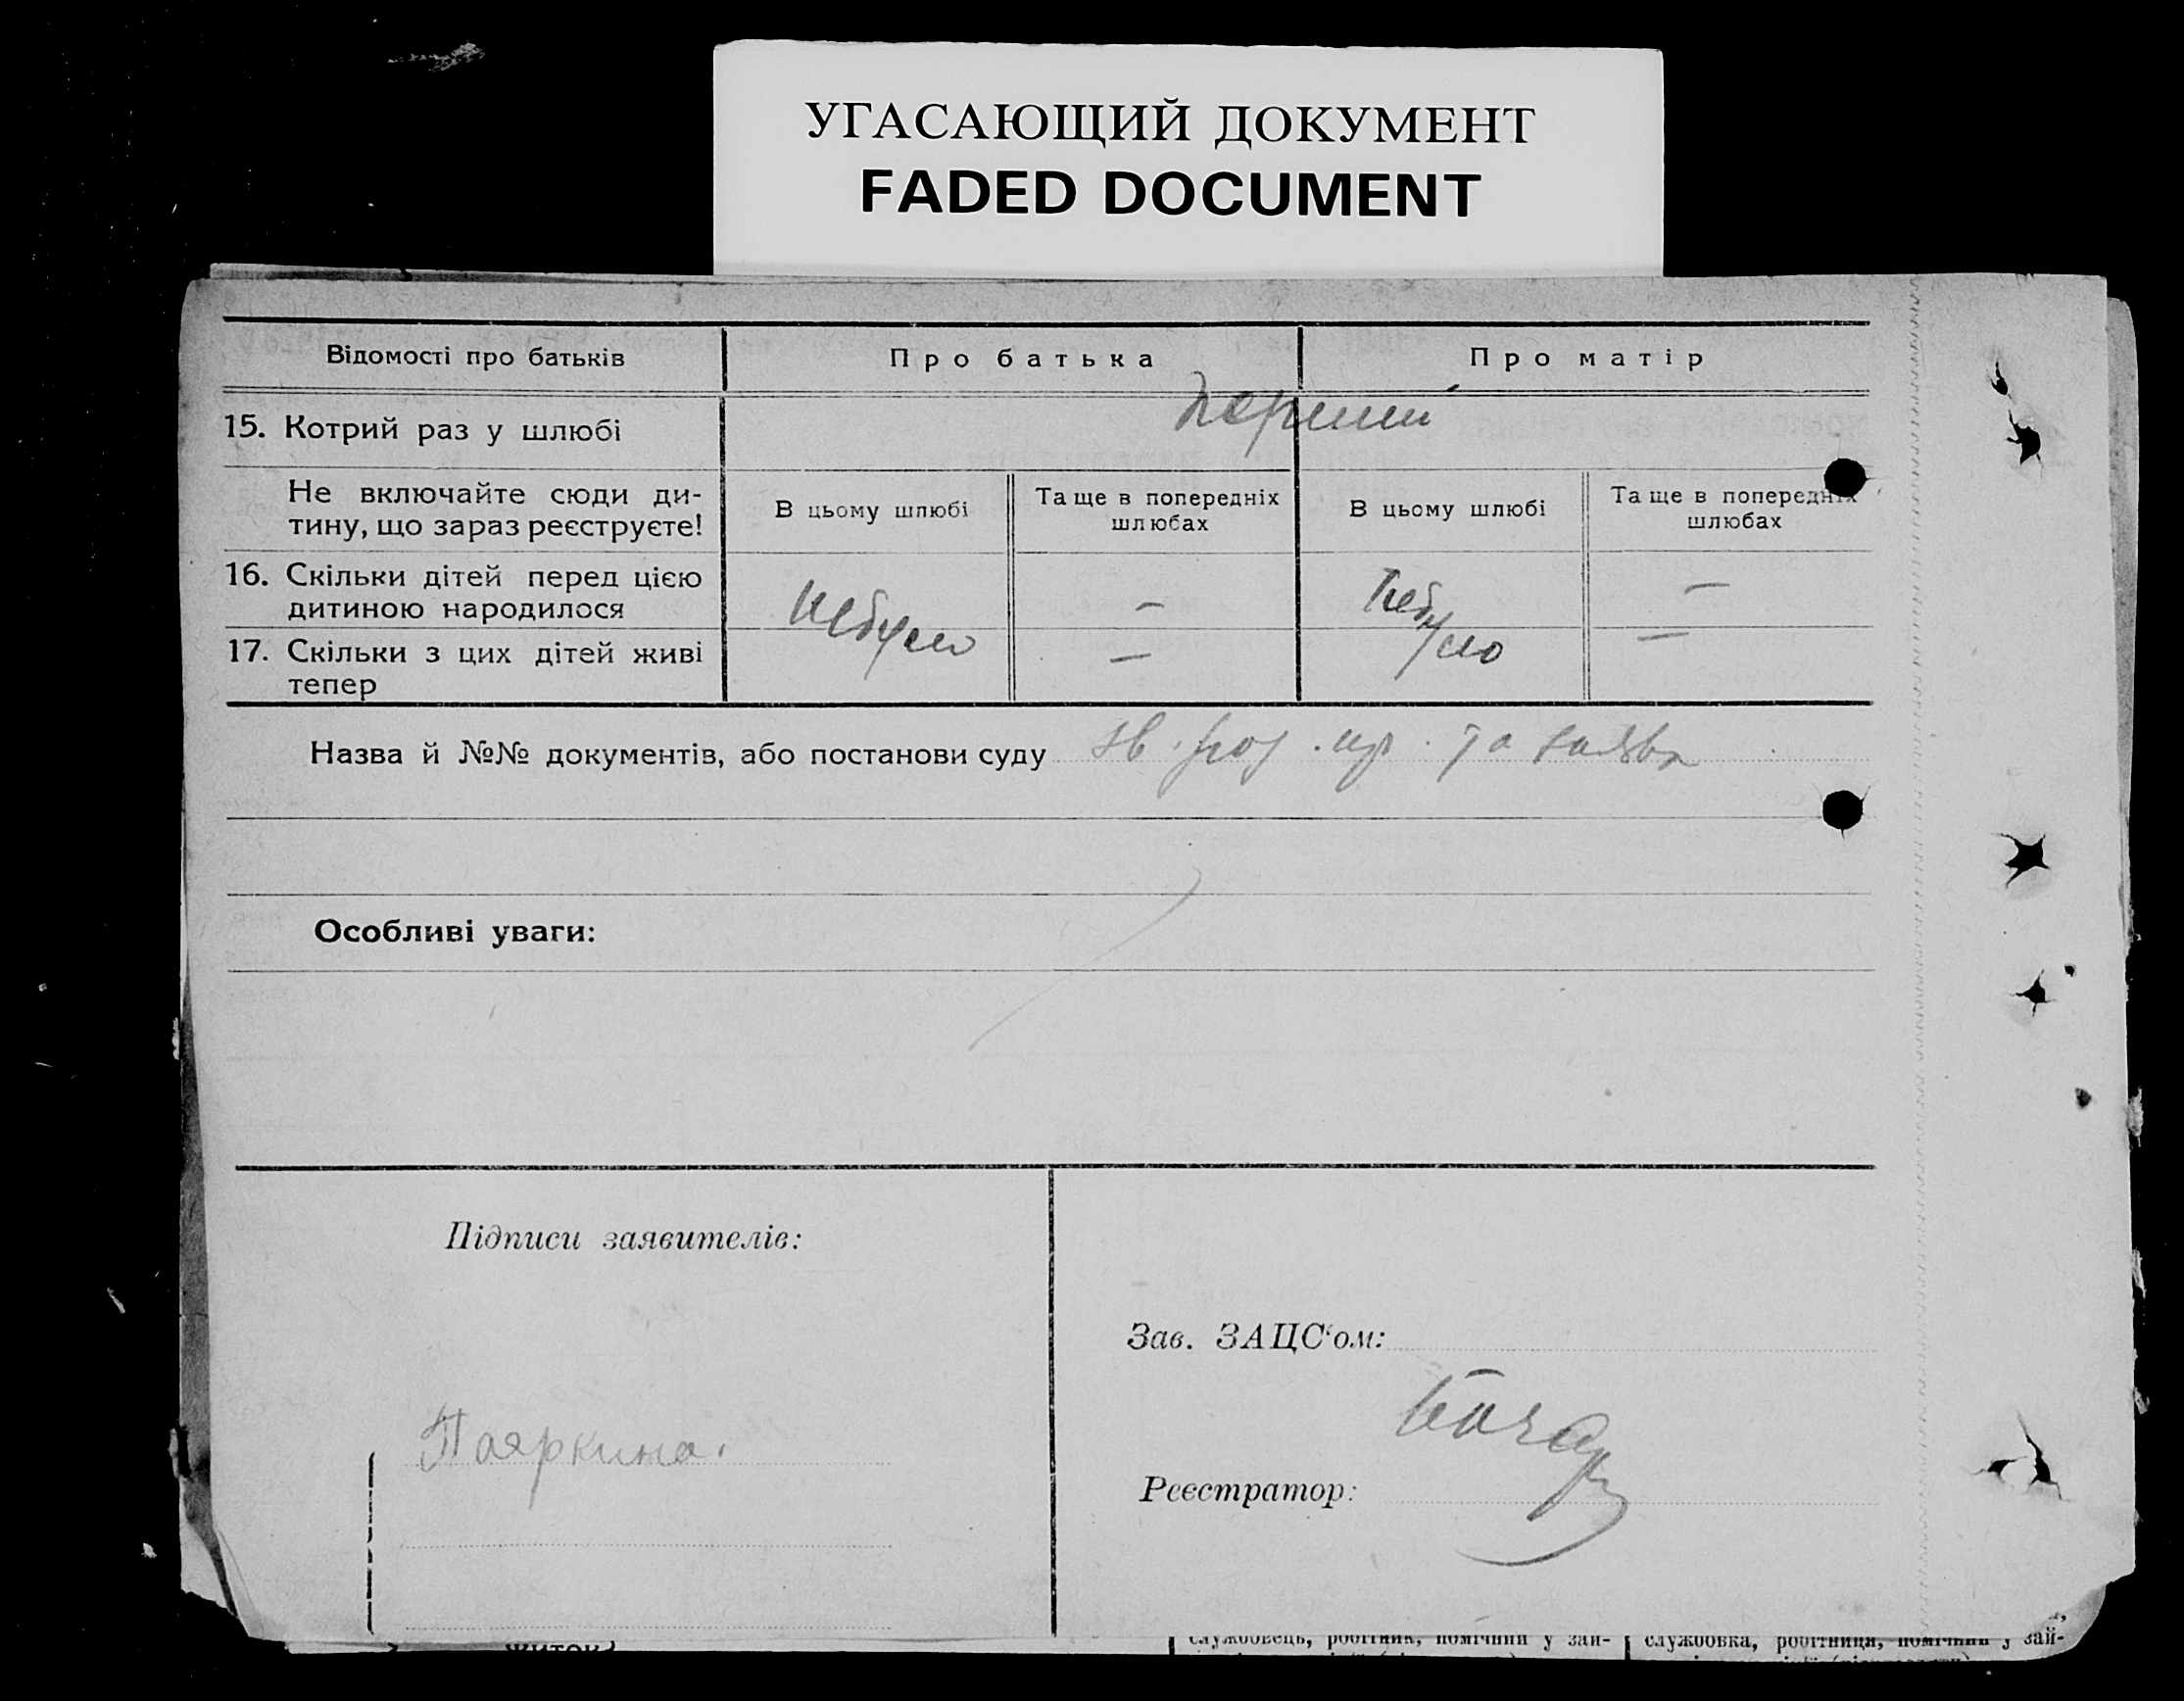 УГАСАЮЩИЙ ДОКУМЕНТ
FADED DOCUMENT
Відомості про батьків
Про батька
Про матір
15. Котрий раз у шлюбі
перший
Не включайте сюди ди-
тину, що зараз реєструєте!
В цьому шлюбі
Та ще в попередніх
шлюбах
В цьому шлюбі
Та ще в попередніх
шлюбах
16. Скільки дітей перед цією
дитиною народилося
небуло
—
небуло
—
17. Скільки з цих дітей живі
тепер
—
—
Назва й №№ документів, або постанови суду
та заява
Особливі уваги:
Підписи заявителів:
Зав. ЗАЦС‘ом:
Пояркина.
Реєстратор:
службовець, робітник, помічний у зай-
службовка, робітниця, помічний у зай-